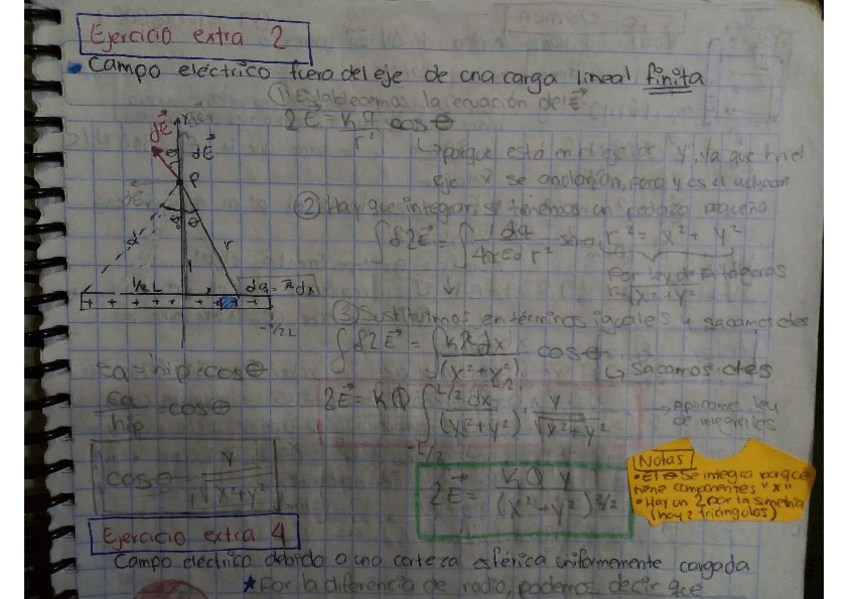 Ejercicio extra 2
• Campo eléctrico fuera del eje de una carga lineal finita
① Establecemos la ecuación de E⃗
2E⃗ = K q/r² cos θ
↳ porque está en el eje de "Y", ya que en el
eje X se anulan, pero y es el
dE⃗ dE⃗
θ
P
r
½ L
dq = λdx
+ + + + + + + +
-½ L
② Hay que integrar si tenemos un pequeño
∫ δ2E⃗ = ∫ 1 dq / 4πε₀ r² r² = x² + y²
Por ley de Pitágoras
r = √x² + y²
③ Sustituimos en términos iguales y sacamos ctes
∫ δ2E⃗ = ∫ Kλdx / (x² + y²) cos θ
↳ Sacamos ctes
ca = hip · cos θ
ca/hip = cos θ
cos θ = y / √x² + y²
2E⃗ = K Q ∫ L/2 -L/2 dx / (x² + y²) · y / √x² + y²
→ Aplicamos ley
de integrales
2E⃗ = K Q y / (x² + y²)^3/2
Notas
• El θ se integra porque
tiene componentes "x"
• Hay un 2 por la simetría
(hay 2 triángulos)
Ejercicio extra 4
Campo eléctrico debido a una corteza esférica uniformemente cargada
★ Por la diferencia de radio, podemos decir que